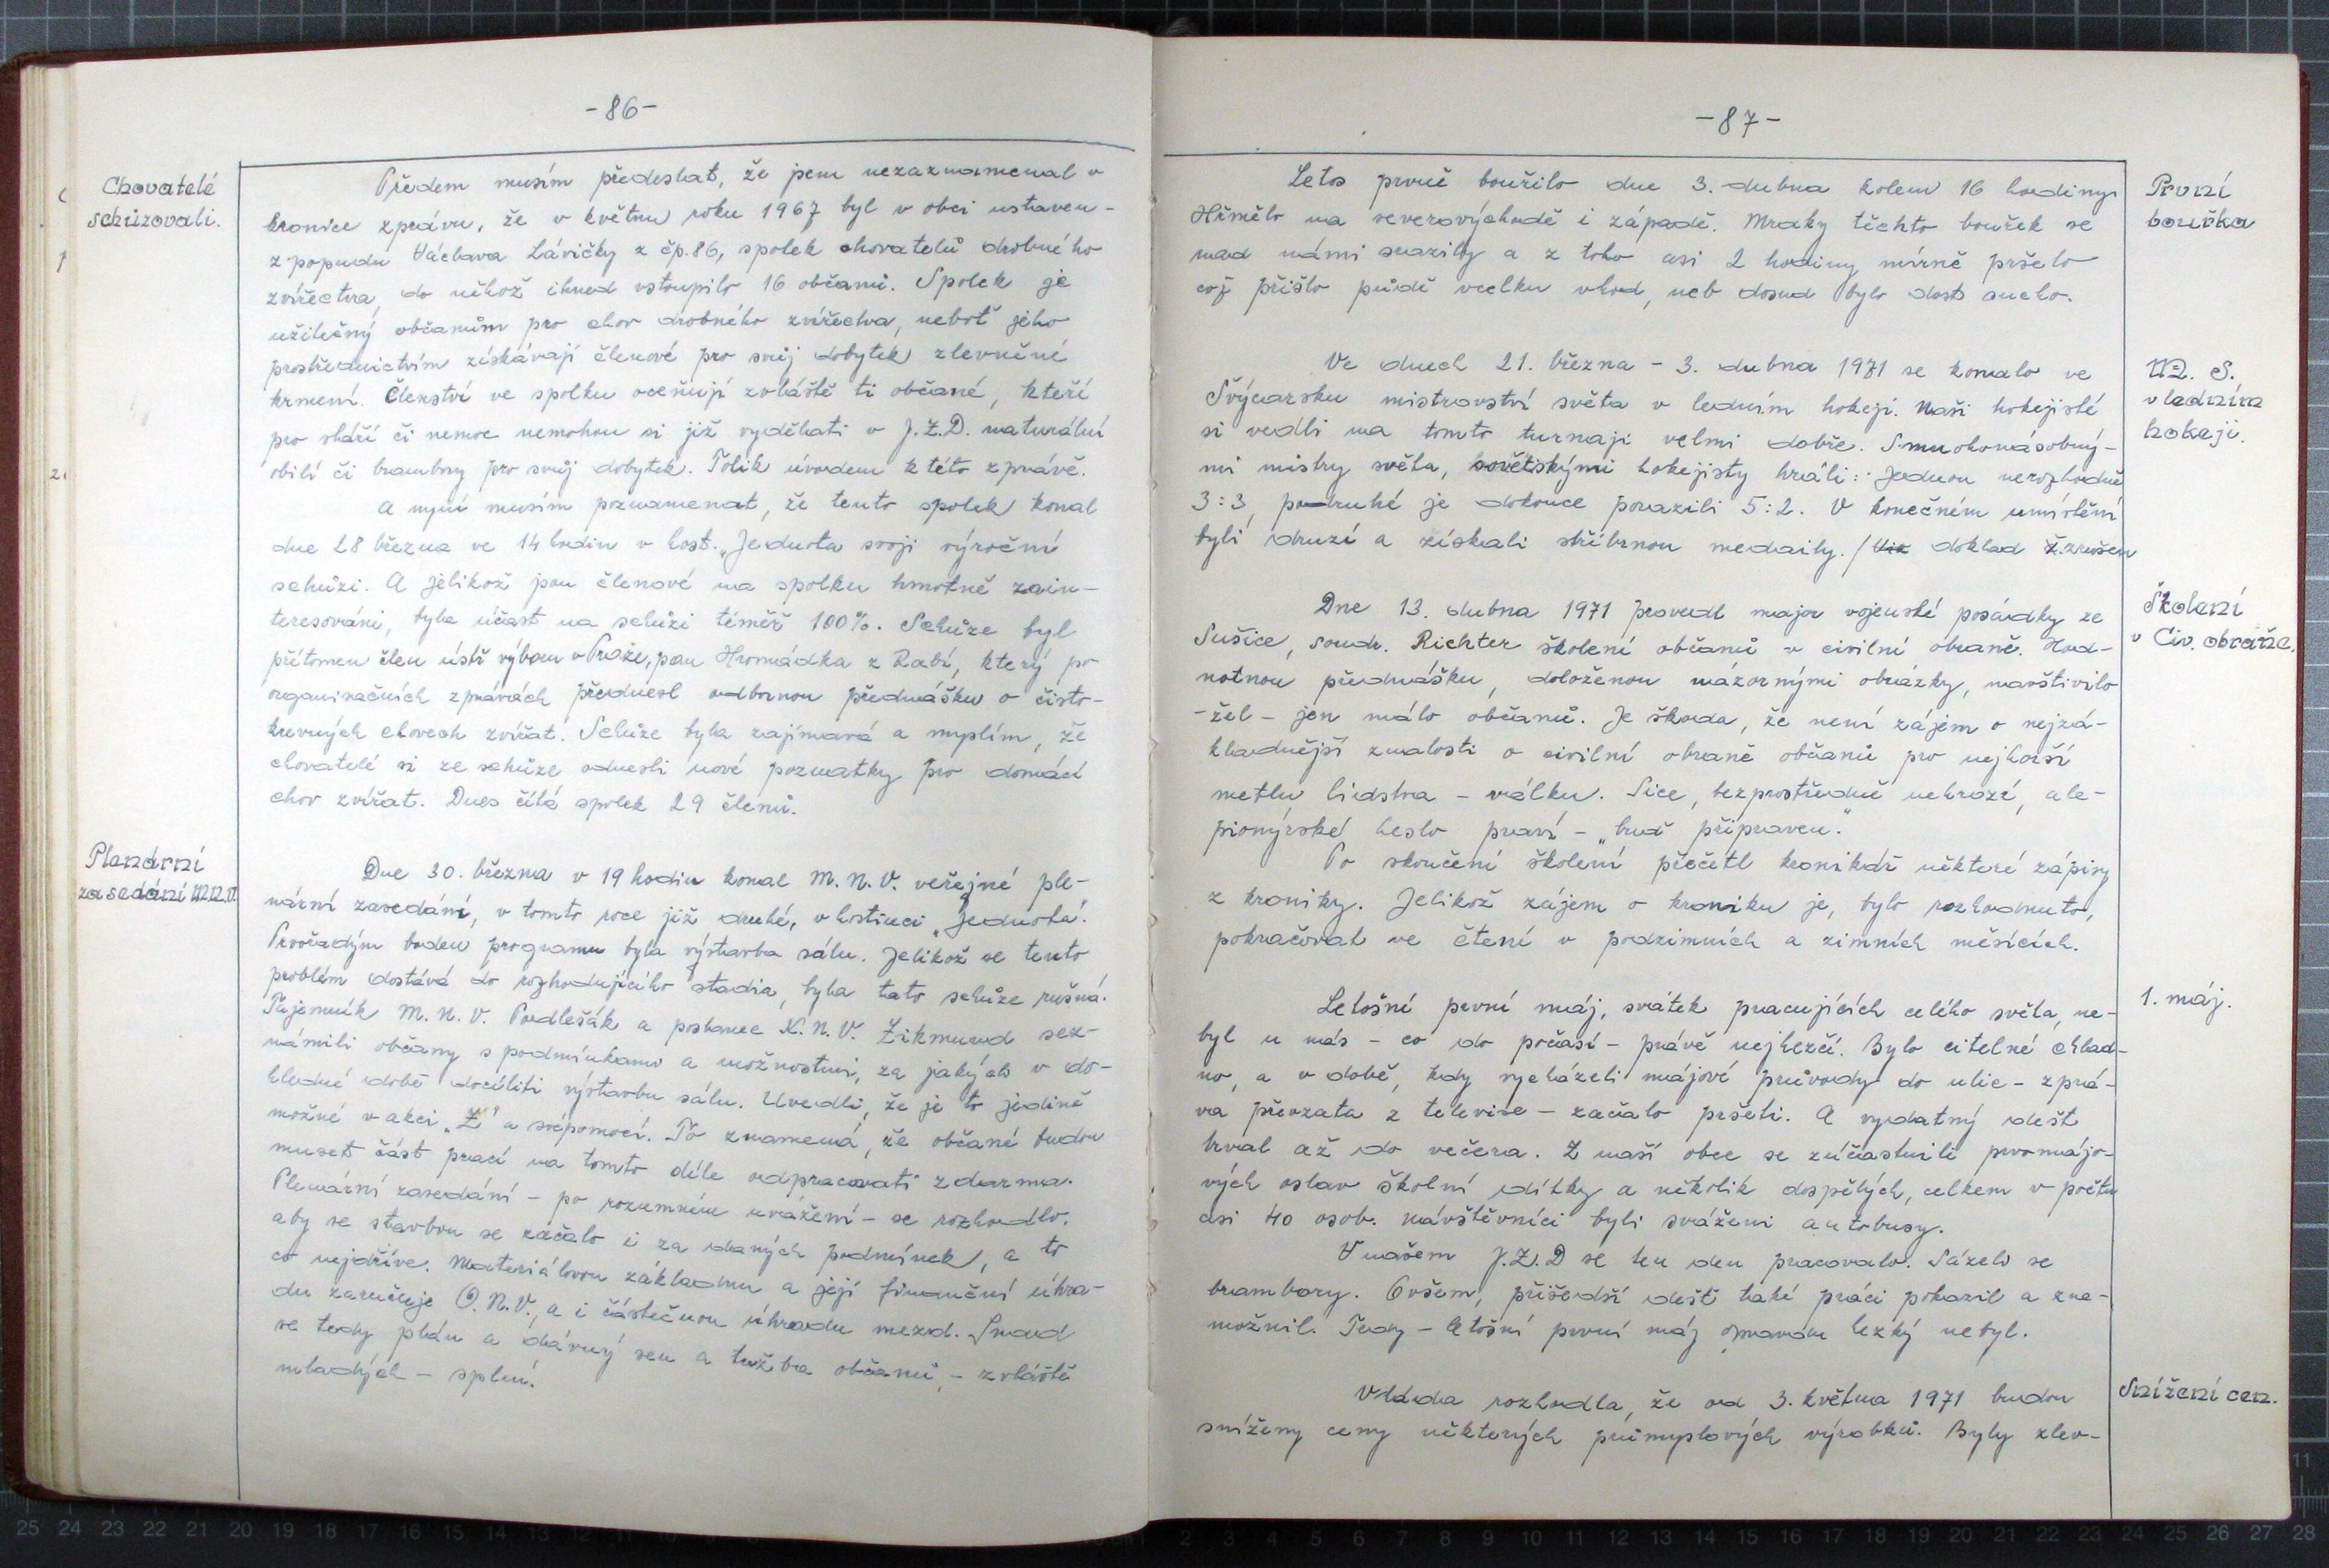 -86-
Chovatelé
schůzovali.
Předem musím předeslat, že jsem nezaznamenal v
kronice zprávu, že v květnu roku 1967 byl v obci ustaven-
z popudu Václava Lávičky z čp. 86, spolek chovatelů drobného
zvířectva, do něhož ihned vstoupilo 16 občanů. Spolek je
užitečný občanům pro chov drobného zvířectva, neboť jeho
prostřednictvím získávají členové pro svůj dobytek zlevněné
krmení. Členství ve spolku oceňují zvláště ti občané, kteří
pro stáří či nemoc nemohou si již vydělati v J.Z.D. naturální
obilí či brambory pro svůj dobytek. Tolik úvodem k této zprávě.
A nyní musím poznamenat, že tento spolek konal
dne 28 března ve 14 hodin v host. „Jednota svoji výroční
schůzi. A jelikož jsou členové na spolku hmotně zain-
teresováni, byla účast na schůzi téměř 100%. Schůze byl
přítomen člen ústř výboru v Praze, pan Hromádka z Rabí, který po
organisačních zprávách přednesl odbornou přednášku o čisto-
krevných chovech zvířat. Schůze byla zajímavá a myslím, že
chovatelé si ze schůze odnesli nové poznatky pro domácí
chov zvířat. Dnes čítá spolek 29 členů.
Plenární
zasedání M.N.V.
Dne 30. března v 19 hodin konal M.N.V. veřejné ple-
nární zasedání, v tomto roce již druhé, v hostinci „Jednota".
Prvořadým bodem programu byla výstavba sálu. Jelikož se tento
problém dostává do rozhodujícího stadia, byla tato schůze rušná.
Tajemník M.N.V. Podlešák a poslanec K.N.V. Zikmund sez-
námili občany s podmínkami a možnostmi, za jakých v do-
hledné době docíliti výstavbu sálu. Uvedli, že je to jedině
možné v akci „Z" a svépomocí. To znamená, že občané budou
muset část prací na tomto díle odpracovati zdarma.
Plenární zasedání - po rozumném uvážení - se rozhodlo,
aby se stavbou se začalo i za daných podmínek, a to
co nejdříve. Materiálovou základnu a její finanční úhra-
du zaručuje O.N.V., a i částečnou úhradu mezd. Snad
se tedy plán a dávný sen a tužba občanů, - zvláště
mladých - splní.
-87-
Letos prvně bouřilo dne 3. dubna kolem 16 hodiny.
Hřmělo na severovýchodě i západě. Mraky těchto bouřek se
nad námi srazily a z toho asi 2 hodiny mírně pršelo
což přišlo půdě vcelku vhod, neb dosud bylo dosti sucho.
První
bouřka
Ve dnech 21. března - 3. dubna 1971 se konalo ve
Švýcarsku mistrovství světa v ledním hokeji. Naši hokejisté
si vedli na tomto turnaji velmi dobře. S mnohonásobný-
mi mistry světa, sovětskými hokejisty hráli: Jednou nerozhodně
3:3, podruhé je dokonce porazili 5:2. V konečném umístění
byli druzí a získali stříbrnou medaily. / Viz doklad Ž. zrušen
M. S.
v ledním
hokeji.
Dne 13. dubna 1971 provedl major vojenské posádky ze
Sušice, soudr. Richter školení občanů v civilní obraně. Hod-
notnou přednášku, doloženou názornými obrázky, navštívilo
-žel- jen málo občanů. Je škoda, že není zájem o nejzá-
kladnější znalosti o civilní obraně občanů pro nejhorší
metlu lidstva - válku. Sice, bezprostředně nehrozí, ale-
pionýrské heslo praví - „buď připraven."
Po skončení školení přečetl kronikář některé zápisy
z kroniky. Jelikož zájem o kroniku je, bylo rozhodnuto,
pokračovat ve čtení v podzimních a zimních měsících.
Školení
v Civ. obraně.
Letošní první máj, svátek pracujících celého světa, ne-
byl u nás - co do počasí - právě nejhezčí. Bylo citelné chlad-
no, a v době, kdy vycházeli májové průvody do ulic - zprá-
va převzata z televise - začalo pršeti. A vydatný dešt
trval až do večera. Z naší obce se zúčastnili prvomájo-
vých oslav školní dítky a několik dospělých, celkem v počtu
asi 40 osob. Návštěvníci byli sváženi autobusy.
V našem J.Z.D se ten den pracovalo. Sázelo se
brambory. Ovšem, přišedší dešť také práci pokazil a zne-
možnil. Tedy - letošní první máj opravdu hezký nebyl.
1. máj.
Vláda rozhodla, že od 3. května 1971 budou
sníženy ceny některých průmyslových výrobků. Byly zlev-
Snížení cen.